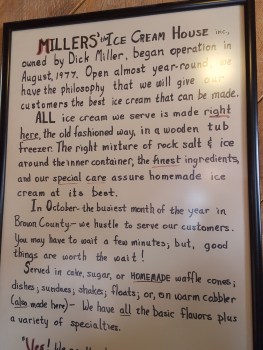 MILLERS' ICE CREAM HOUSE inc.,
owned by Dick Miller, began operation in
August, 1977. Open almost year-round, we
have the philosophy that we will give our
customers the best ice cream that can be made.
ALL ice cream we serve is made right
here, the old fashioned way, in a wooden tub
freezer. The right mixture of rock salt & ice
around the inner container, the finest ingredients,
and our special care assure homemade ice
cream at its best.
In October - the busiest month of the year in
Brown County - we hustle to serve our customers.
You may have to wait a few minutes; but, good
things are worth the wait!
Served in cake, sugar, or HOMEMADE waffle cones;
dishes; sundaes; shakes; floats; or, on warm cobbler
(also made here) - We have all the basic flavors plus
a variety of specialties.
"Yes!